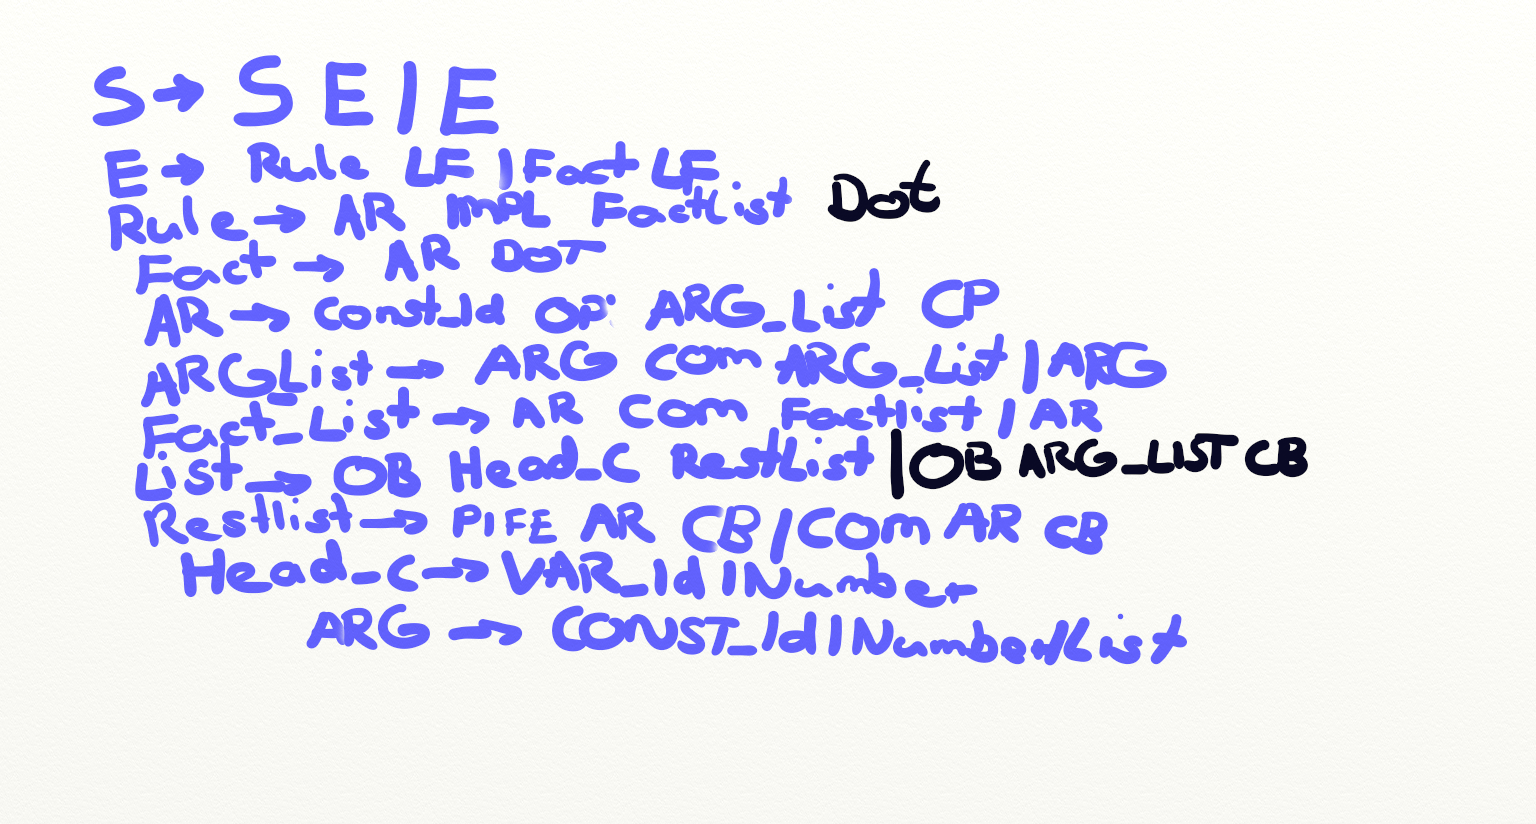 S → S E | E
E → Rule LF | Fact LF
Rule → AR IMPL FactList Dot
Fact → AR DOT
AR → Const_Id OP ARG_List CP
ARGList → ARG Com ARG_List | ARG
Fact_List → AR Com Factlist | AR
List → OB Head_C RestList | OB ARG_LIST CB
Restlist → PIFE AR CB | COm AR CB
Head_C → VAR_Id | Number
ARG → CONST_Id | Number | List